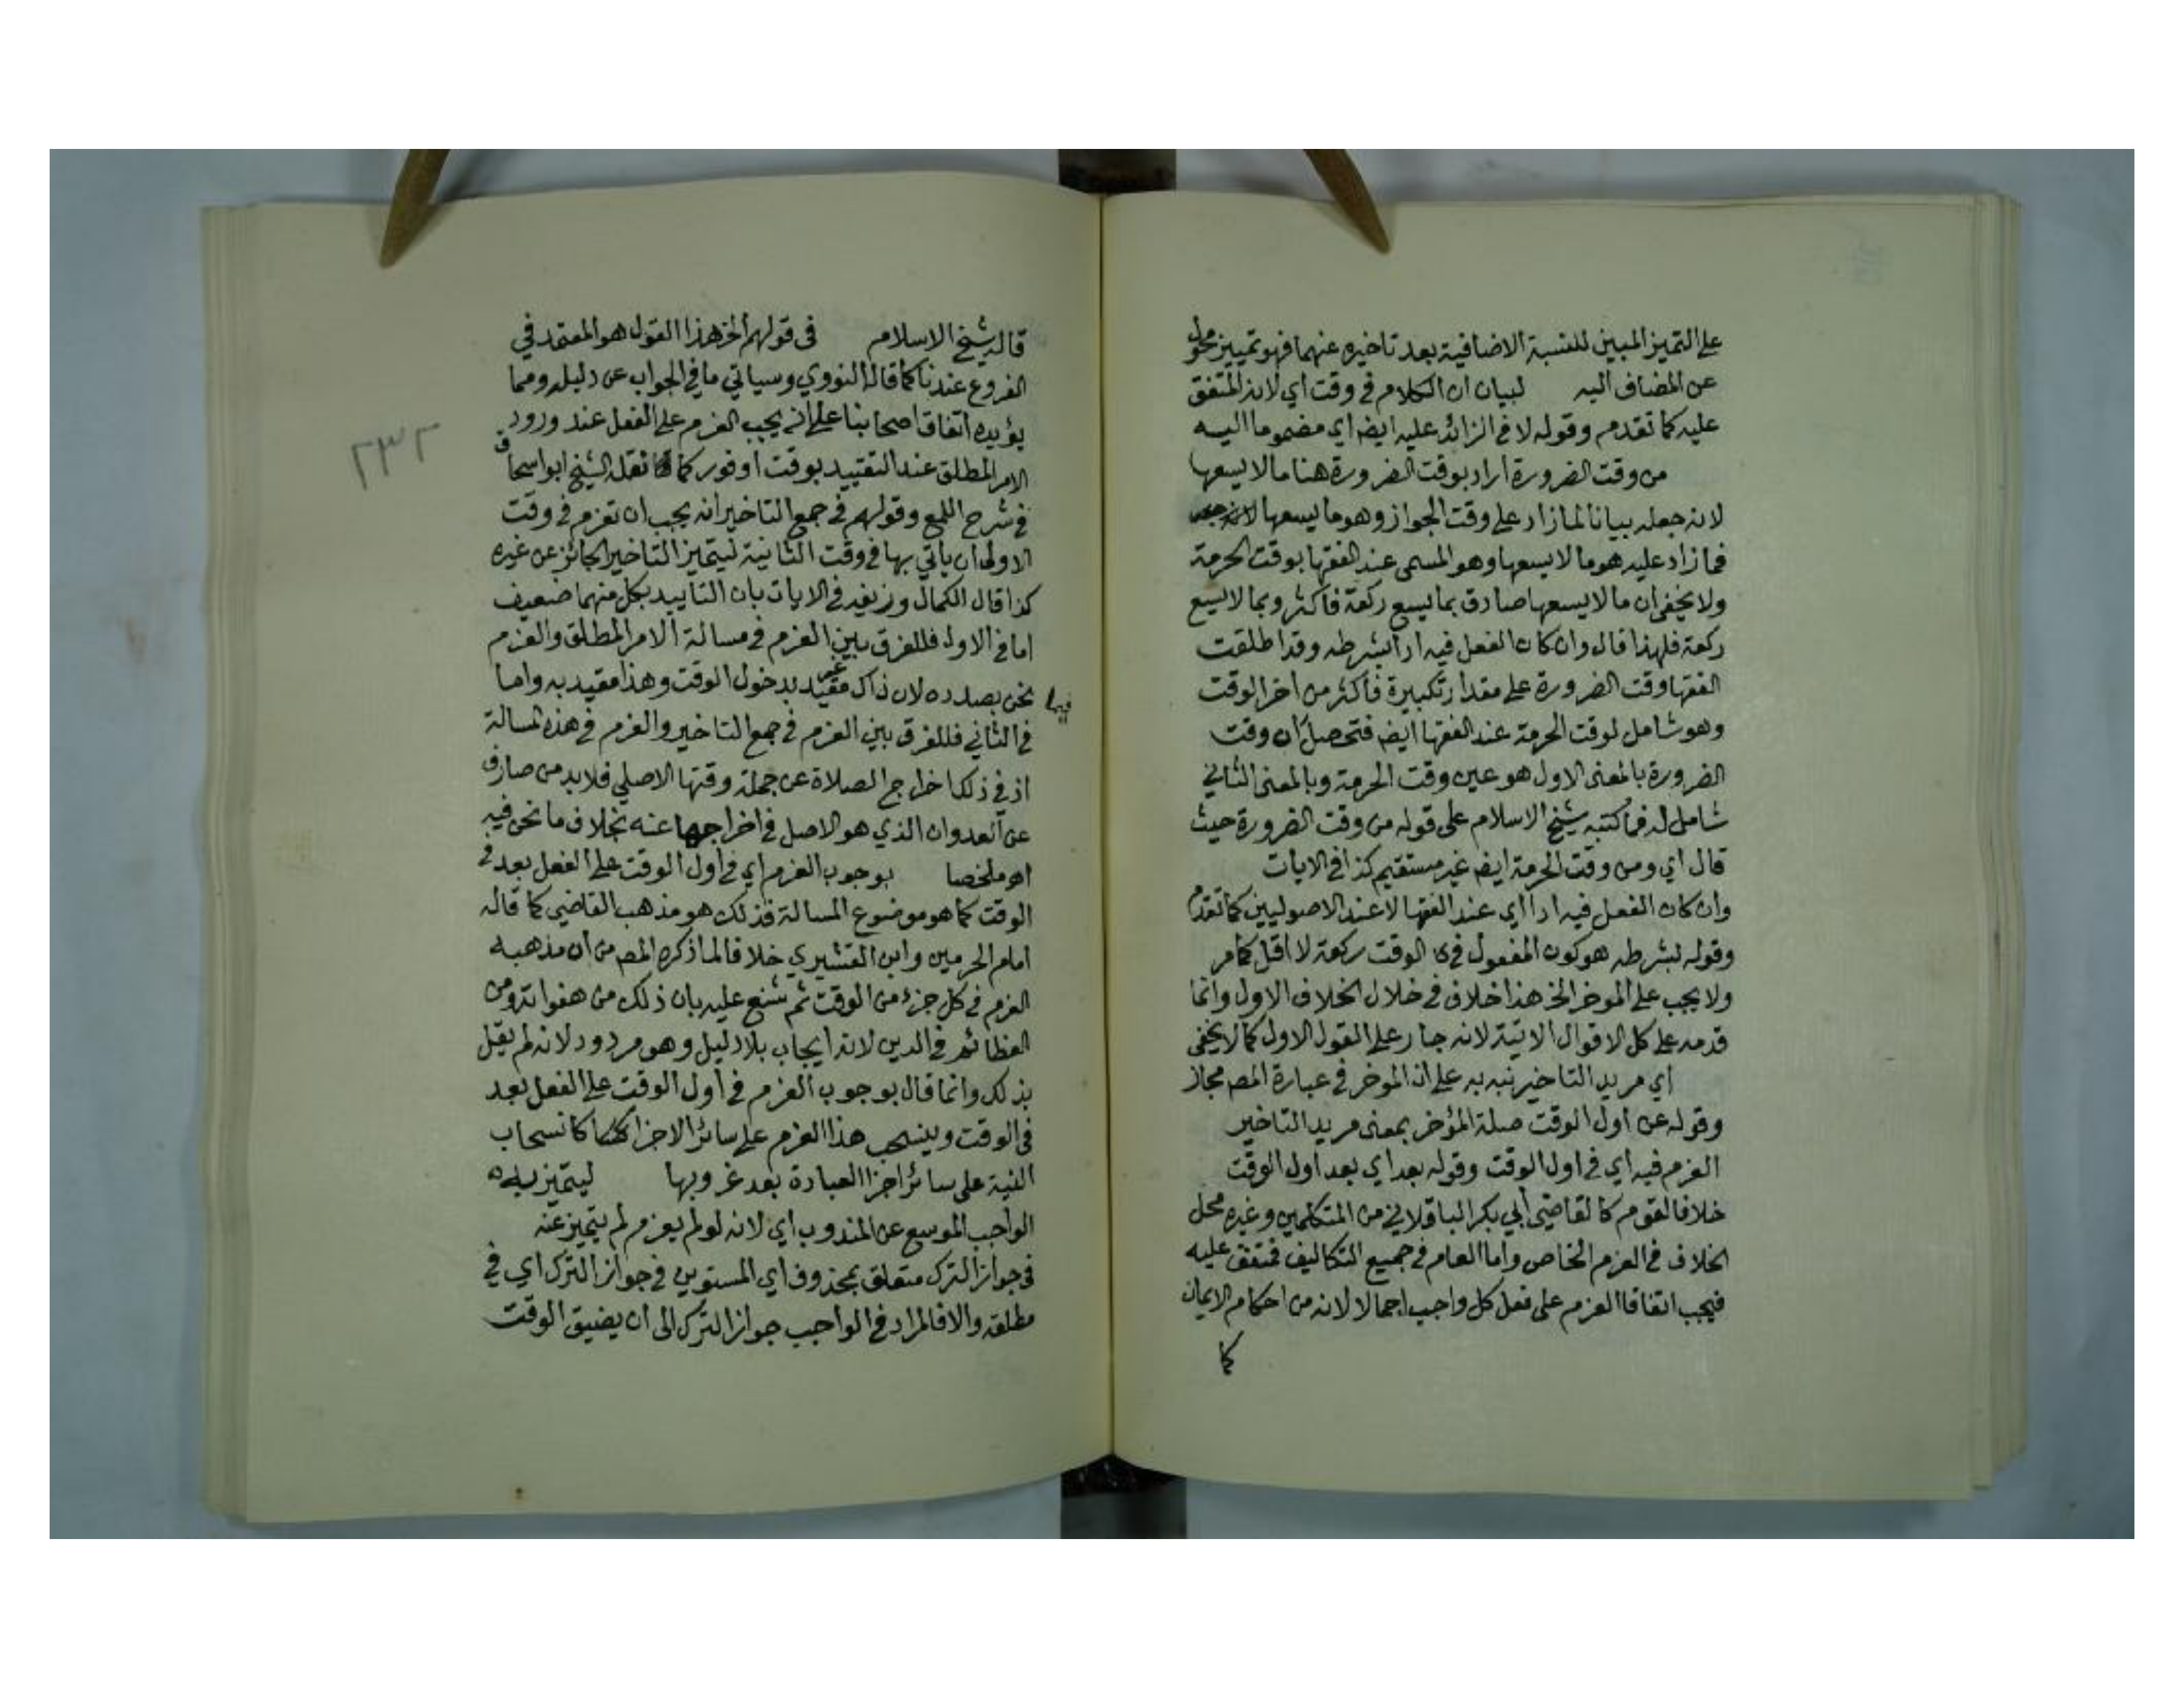 على التمييز المبين للنسبة الاضافية بعد تاخيره عنهما فهو تمييز محول
عن المضاف اليه لبيان ان الكلام في وقت اي لانه المتفق
عليه كما تقدم وقوله لا في الزائد عليه ايضا اي مضموما اليه
من وقت الضرورة اراد بوقت الضرورة هنا ما لا يسعها
لانه جعله بيانا لما زاد على وقت الجواز وهو ما يسعها
فما زاد عليه هو ما لا يسعها وهو المسمى عند الفقها بوقت الحرمة
ولا يخفى ان ما لا يسعها صادق بما يسع ركعة فاكثر وبما لا يسع
ركعة فلهذا قال وان كان الفعل فيه ادا بشرطه وقد اطلقت
الفقها وقت الضرورة على مقدار تكبيرة فاكثر من اخر الوقت
وهو شامل لوقت الحرمة عند الفقها ايضا فتحصل ان وقت
الضرورة بالمعنى الاول هو عين وقت الحرمة وبالمعنى الثاني
شامل له فما كتبه شيخ الاسلام على قوله من وقت الضرورة حيث
قال اي ومن وقت الحرمة ايضا غير مستقيم كذا في الايات
وان كان الفعل فيه ادا اي عند الفقها لا عند الاصوليين كما تقدم
وقوله بشرطه هو كون المفعول في الوقت ركعة لا اقل كما مر
ولا يجب على الموخر الخ هذا خلاف في خلال الخلاف الاول وانما
قدمه على كل الاقوال الاتية لانه جار على القول الاول كما لا يخفى
اي مريد التاخير نبه به على ان الموخر في عبارة المص مجاز
وقوله عن اول الوقت صلة المؤخر بمعنى مريد التاخير
العزم فيه اي في اول الوقت وقوله بعد اي بعد اول الوقت
خلافا لقوم كالقاضي ابي بكر الباقلاني من المتكلمين وغيره محل
الخلاف في العزم الخاص واما العام في جميع التكاليف فمتفق عليه
فيجب اتفاقا العزم على فعل كل واجب اجمالا لانه من احكام الايمان
كما
٢٣٢
قاله شيخ الاسلام في قولهم الخ هذا القول هو المعتمد في
الفروع عندنا كما قاله النووي وسياتي ما في الجواب عن دليله ومما
يؤيده اتفاق اصحابنا على انه يجب العزم على الفعل عند ورود
الامر المطلق عند التقييد بوقت او فور كما نقله الشيخ ابو اسحاق
في شرح اللمع وقولهم في جمع التاخير انه يجب ان تعزم في وقت
الاولى ان ياتي بها في وقت الثانية ليتميز التاخير الجائز عن غيره
كذا قال الكمال وزيفه في الايات بان التاييد بكل منهما ضعيف
اما في الاول فللفرق بين العزم في مسالة الامر المطلق والعزم
فيما نحن بصدده لان ذاك غير مقيد بدخول الوقت وهذا مقيد به واما
في الثاني فللفرق بين العزم في جمع التاخير والعزم في هذه المسالة
اذ في ذلك اخراج الصلاة عن جملة وقتها الاصلي فلا بد من صارف
عن العدوان الذي هو الاصل في اخراجها عنه بخلاف ما نحن فيه
اه ملخصا بوجوب العزم اي في اول الوقت على الفعل بعد في
الوقت كما هو موضوع المسالة فذلك هو مذهب القاضي كما قاله
امام الحرمين وابن القشيري خلافا لما ذكره المص من ان مذهبه
العزم في كل جزء من الوقت ثم شنع عليه بان ذلك من هفواته ومن
العظائم في الدين لانه ايجاب بلا دليل وهو مردود لانه لم يقل
بذلك وانما قال بوجوب العزم في اول الوقت على الفعل بعد
في الوقت وينسحب هذا العزم على سائر الاجزا كانسحاب
النية على سائر اجزا العبادة بعد غروبها ليتميز به
الواجب الموسع عن المندوب اي لانه لو لم يعزم لم يتميز عنه
في جواز الترك متعلق بمحذوف اي المستويين في جواز الترك اي في
مطلقه والا فالمراد في الواجب جواز الترك الى ان يضيق الوقت